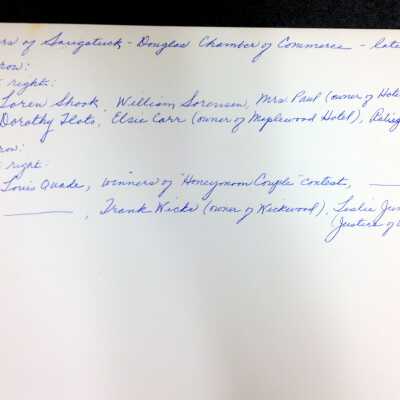 rs of Saugatuck - Douglas Chamber of Commerce - late
row:
right:
Loren Shook, William Sorensen, Mrs Paul (owner of Hote
Dorothy Flots, Elsie Carr (owner of Maplewood Hotel),
row:
right:
Louis Quade, winners of "Honeymoon Couple" contest, ____
____, Frank Wicks (owner of Wickwood), Leslie Jun
(Justice of